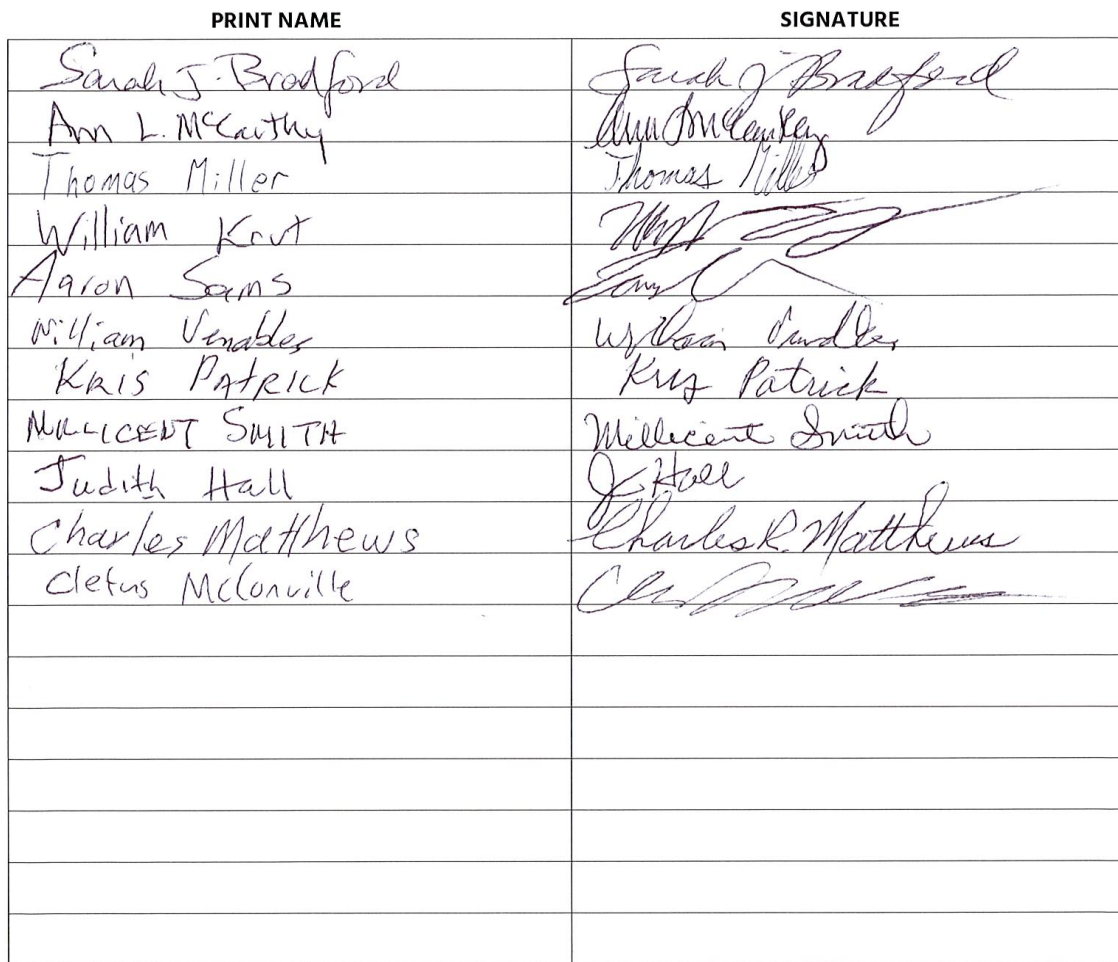 PRINT NAME SIGNATURE
Sarah J. Bradford Sarah J Bradford
Ann L. McCarthy Ann L McCarthy
Thomas Miller Thomas Miller
William Krut
Aaron Sams
William Venables William Venables
KRIS PATRICK Kris Patrick
MILLICENT SMITH Millicent Smith
Judith Hall J Hall
Charles Matthews Charles R. Matthews
Cletus McConville